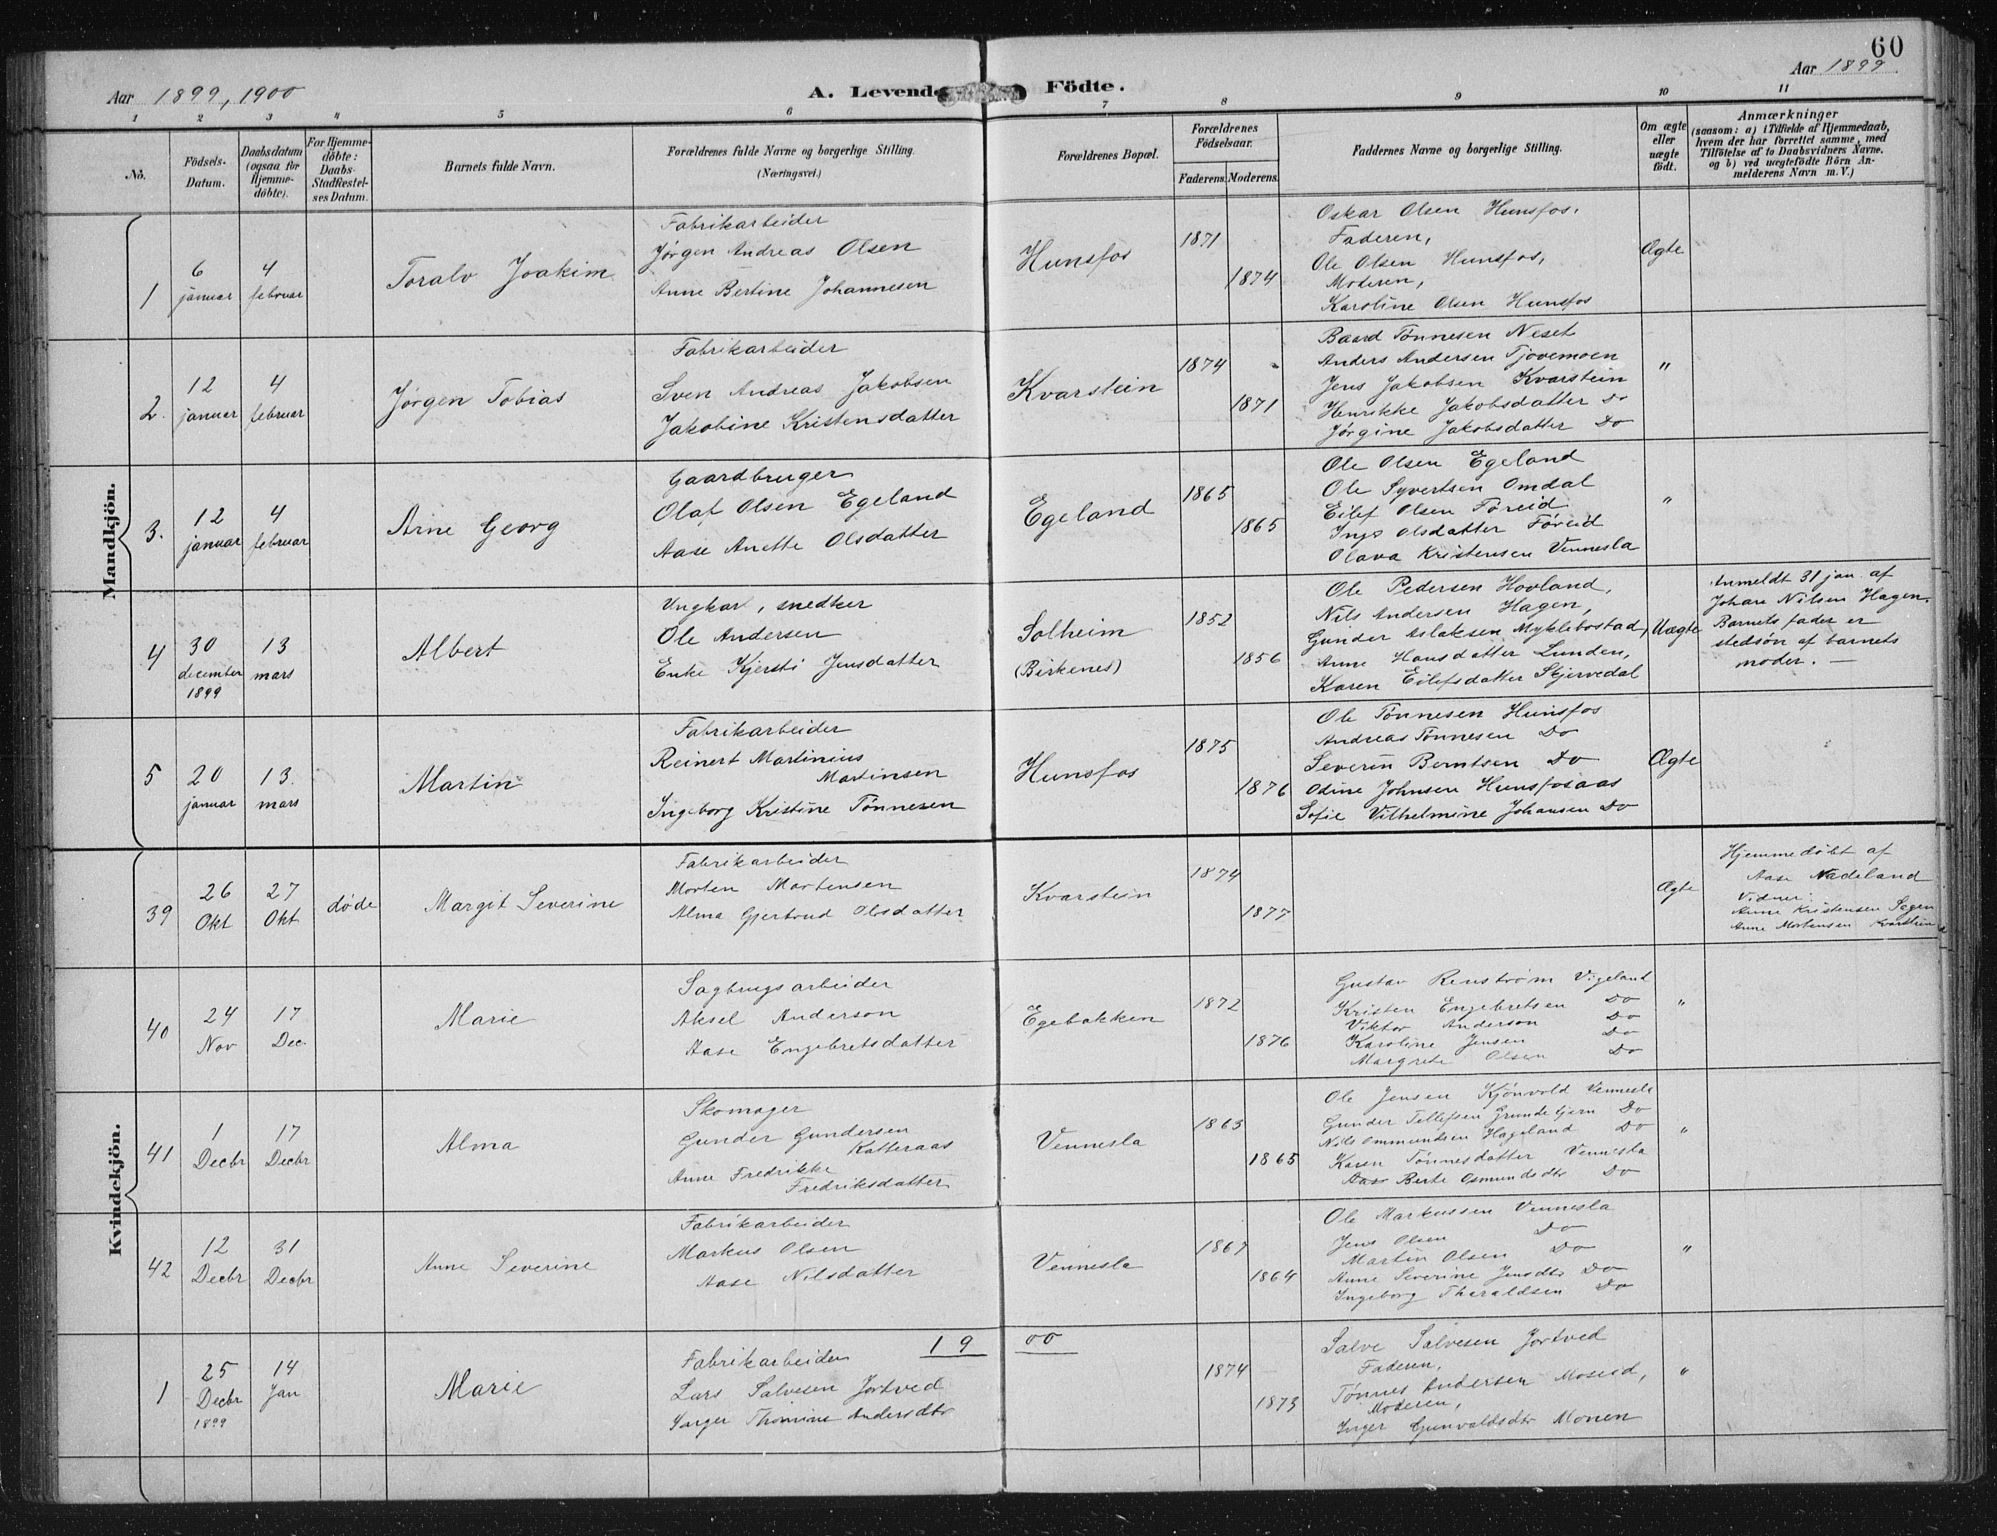 60
Aar 1899, 1900
A. Levende Födte.
Aar 1899
1 2 3 4 5 6 7 8 9 10 11
No.
Födsels-Datum.
Daabsdatum (ogsaa for Hjemme-döbte).
For Hjemme-döbte: Daabs-Stadfæstel-ses Datum.
Barnets fulde Navn.
Forældrenes fulde Navne og borgerlige Stilling. (Næringsvei.)
Forældrenes Bopæl.
Forældrenes Födselsaar.
Faderens. Moderens.
Faddernes Navne og borgerlige Stilling.
Om ægte eller uægte födt.
Anmærkninger
(saasom: a) i Tilfælde af Hjemmedaab, hvem der har forrettet samme, med Tilföielse af to Daabsvidners Navne, og b) ved uægtefödte Börn An-melderens Navn m. V.)
Mandkjön.
1
6 januar
4 februar
Toralv Joakim
Fabrikarbeider
Jørgen Andreas Olsen
Anne Bertine Johannesen
Hunsfos
1871
1874
Oskar Olsen Hunsfos,
Faderen,
Ole Olsen Hunsfos,
Moderen,
Karoline Olsen Hunsfos
Ægte
2.
12 januar
4 februar
Jørgen Tobias
Fabrikarbeider
Sven Andreas Jakobsen
Jakobine Kristensdatter
Kvarstein
1874
1871
Baard Tønnesen Neset
Anders Andersen Tjovemoen
Jens Jakobsen Kvarstein
Henrikke Jakobsdatter Do
Jørgine Jakobsdatter Do
"
3.
12 januar
4 februar
Arne Georg
Gaardbruger
Olaf Olsen Egeland
Aase Anette Olsdatter
Egeland
1865
1865
Ole Olsen Egeland
Ole Syvertsen Omdal
Eilef Olsen Føreid
Inge Olsdatter Føreid
Olava Kristensen Vennesla
"
4
30 december 1899
13 mars
Albert
Ungkar, snedker
Ole Andersen
Enke Kjersti Jensdatter
Solheim
(Birkenes)
1852
1856
Ole Pedersen Hovland,
Nils Andersen Hagen,
Gunder Aslaksen Myklebostad,
Anne Hansdatter Lunden,
Karen Eilefsdatter Skjervedal
Uægte
Anmeldt 31 jan. af
Johan Nilsen Hagen.
Barnets fader er
stedsøn af barnets
moder. —
5
20 januar
13. mars
Martin
Fabrikarbeider
Reinert Martinius
Martinsen
Ingeborg Kristine Tønnesen
Hunsfos
1875
1876
Ole Tønnesen Hunsfos
Andreas Tønnesen Do
Severin Berntsen Do
Odine Johnsen Hunsfosaas
Sofie Vilhelmine Johansen Do
Ægte
Kvindekjön.
39
26 Okt
27 Okt
døde
Margit Severine
Fabrikarbeider
Morten Mortensen
Alma Gjertrud Olsdatter
Kvarstein
1874
1877
Ægte
Hjemmedøbt af
Aase Nadeland
Vidner
Anne Kristensen Segen
Anne Mortensen Kvarstein
40
24 Nov
17 Dec.
Marie
Sagbrugsarbeider
Aksel Anderson
Aase Engebretsdatter
Egebakken
1872
1876
Gustav Renstrøm Vigeland
Kristen Engebretsen Do
Viktor Anderson Do
Karoline Jensen Do
Margrete Olsen Do
"
41
1 Decbr
17 Decbr
Alma
Skomager
Gunder Gundersen
Katteraas
Anne Fredrikke
Fredriksdatter
Vennesla
1863
1865
Ole Jensen Kjönvold Vennesla
Gunder Tellefsen Grundebjern Do
Nils Ommundsen Hageland Do
Karen Tønnesdatter Vennesla
Aase Berte Osmundsdtr Do
"
42
12 Decbr
31 Decbr
Anne Severine
Fabrikarbeider
Markus Olsen
Aase Nilsdatter
Vennesla
1867
1864
Ole Markussen Vennesla
Jens Olsen Do
Martin Olsen Do
Anne Severine Jensdtr Do
Ingeborg Tharaldsen Do
"
19 00
1
25 Decbr 1899
14 Jan
Marie
Fabrikarbeider
Lars Salvesen Jortved
Thomine Andersdtr
1874
1873
Salve Salvesen Jortved
Faderen,
Tønnes Andersen Moseid,
Moderen,
Inger Gunvaldsdtr Monen
"